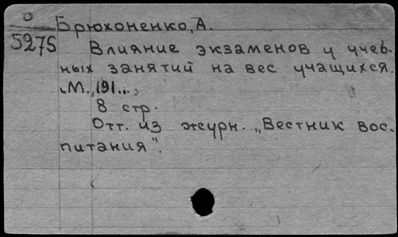 О Брюхоненко, А.
5275
Влияние экзаменов и учеб-
ных занятий на вес учащихся.
М., 191..,
8 стр.
Отт. из журн. „Вестник вос-
питания".